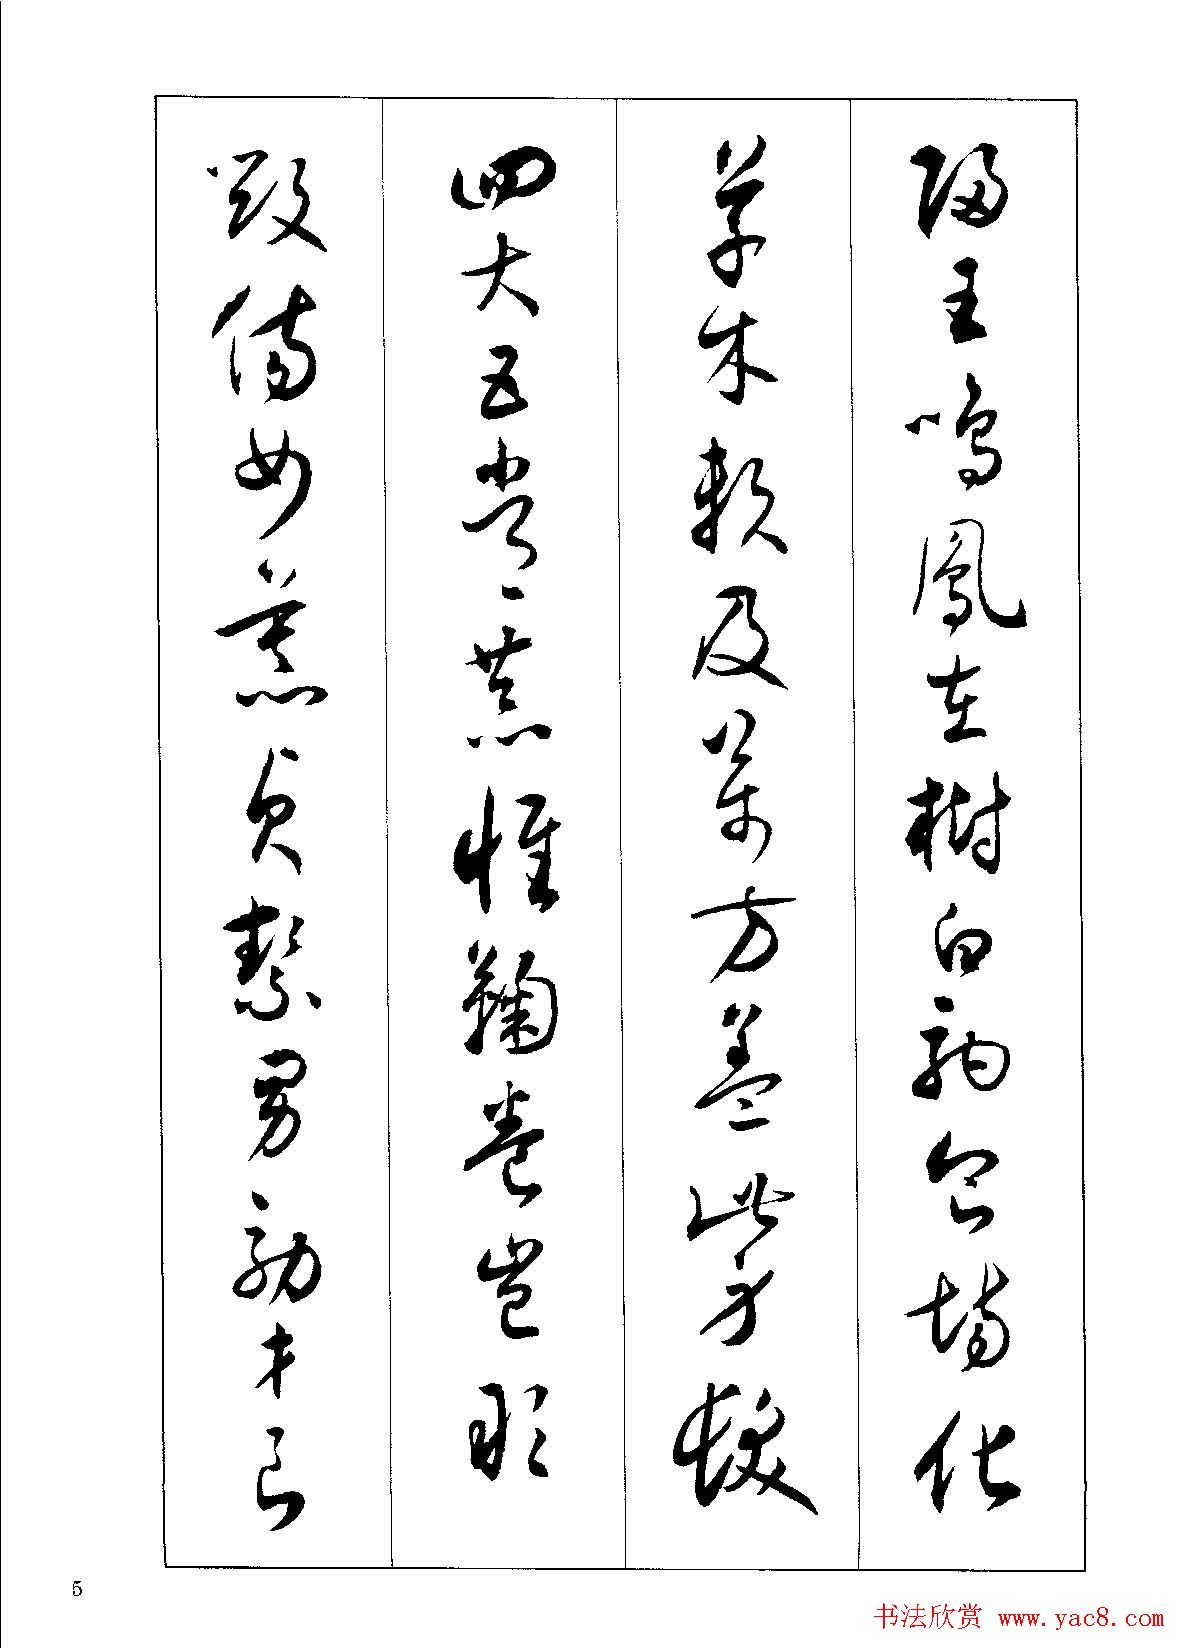 歸王鳴鳳在樹白駒食場化
草木賴及萬方蓋此身髮
四大五常恭惟鞠養豈敢
毀傷女慕貞絜男効才良
5
书法欣赏 www.yac8.com